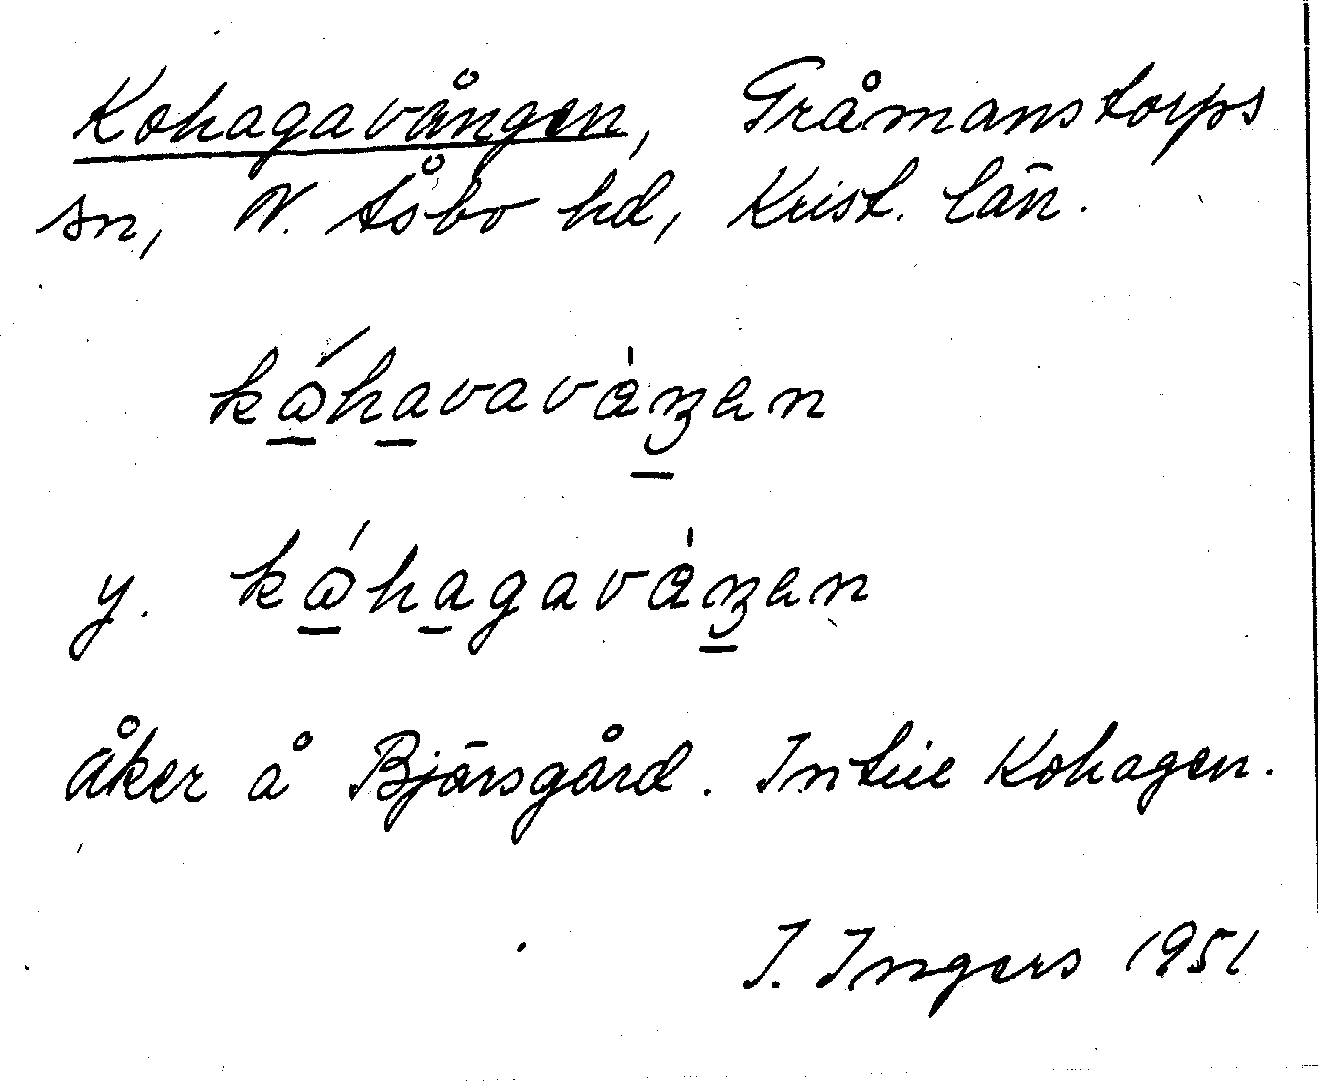 Kohagavången, Gråmanstorps
sn, N. Åsbo hd, Krist. län.
kåhavavaŋen
y. kåhagavaŋen
åker å Bjärsgård. Intill Kohagen.
I. Ingers 1951